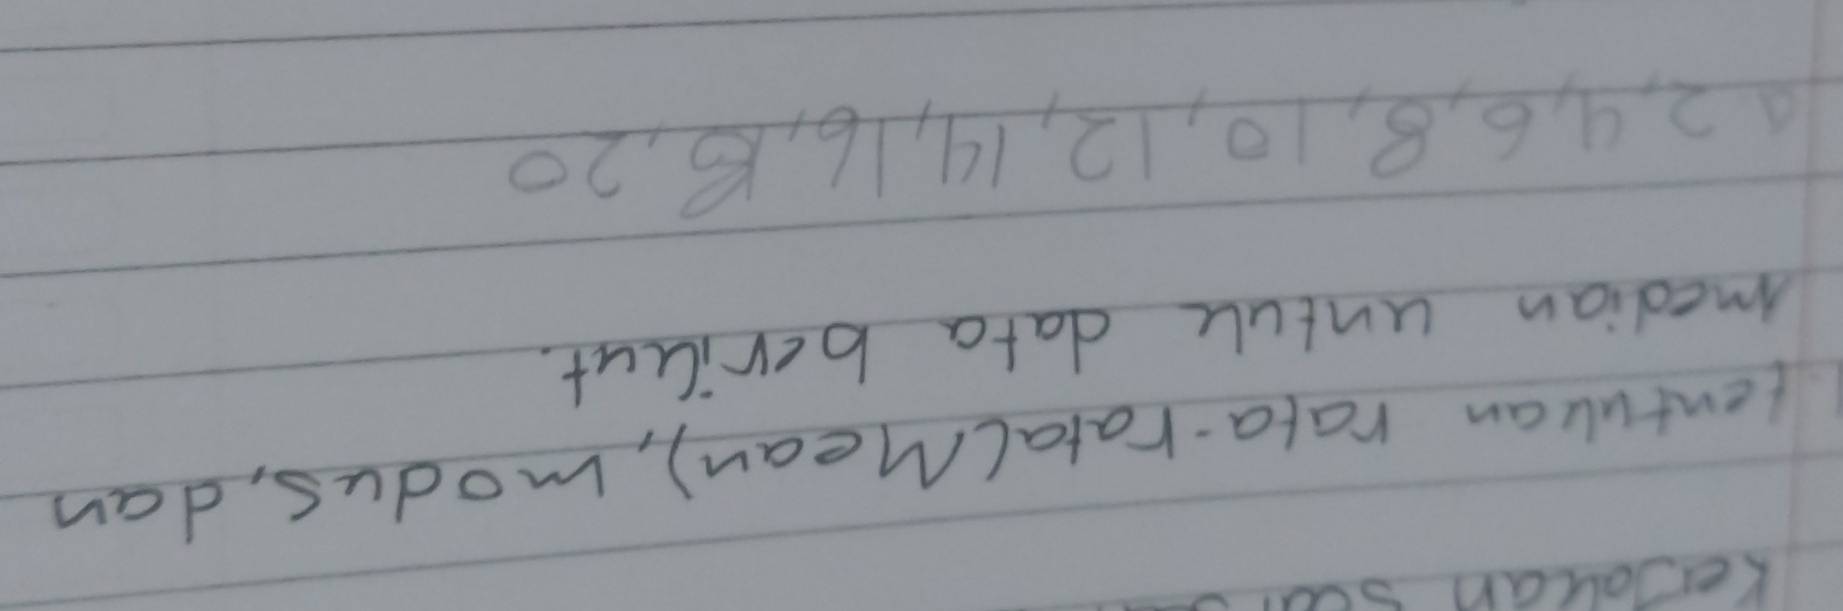 Kerjakan soal
1. tentukan rata-rata (Mean), modus, dan
median untuk data berikut.
a 2, 4, 6, 8, 10, 12, 14, 16, 18, 20